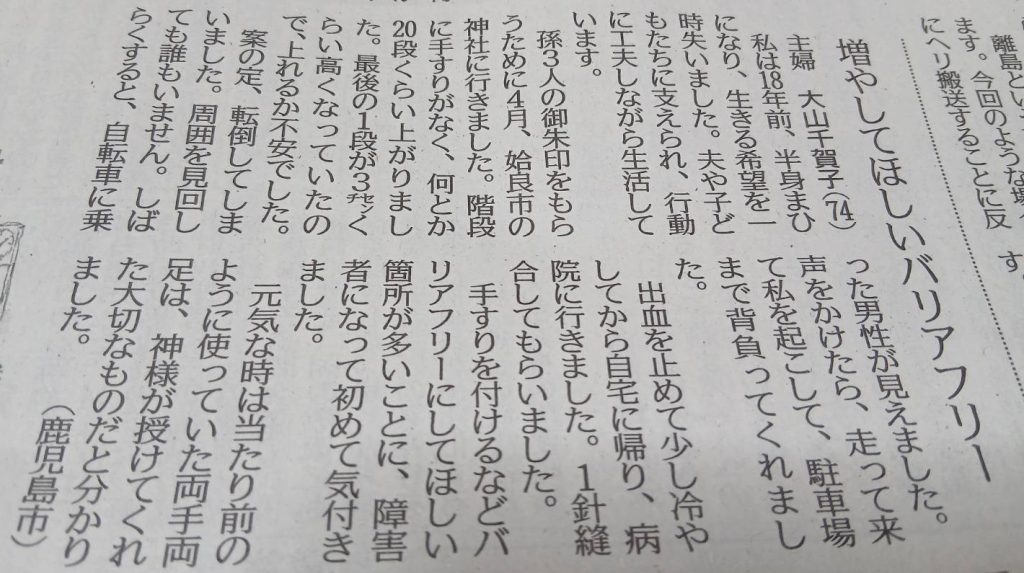 離島とい
ます。今回のような場
にヘリ搬送することに反
す
増やしてほしいバリアフリー
主婦　大山千賀子(74)
私は18年前、半身まひ
になり、生きる希望を一
時失いました。夫や子ど
もたちに支えられ、行動
に工夫しながら生活して
います。
孫3人の御朱印をもら
うために4月、姶良市の
神社に行きました。階段
に手すりがなく、何とか
20段くらい上がりまし
た。最後の1段が3㌢く
らい高くなっていたの
で、上れるか不安でした。
案の定、転倒してしま
いました。周囲を見回し
ても誰もいません。しば
らくすると、自転車に乗
った男性が見えました。
声をかけたら、走って来
て私を起こして、駐車場
まで背負ってくれまし
た。
出血を止めて少し冷や
してから自宅に帰り、病
院に行きました。1針縫
合してもらいました。
手すりを付けるなどバ
リアフリーにしてほしい
箇所が多いことに、障害
者になって初めて気付き
ました。
元気な時は当たり前の
ように使っていた両手両
足は、神様が授けてくれ
た大切なものだと分かり
ました。
(鹿児島市)